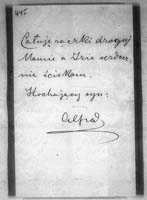 Całuję rączki drogiej
Mamie a Dzia serdecz
nie ściskam.
Kochający syn.
Alfred